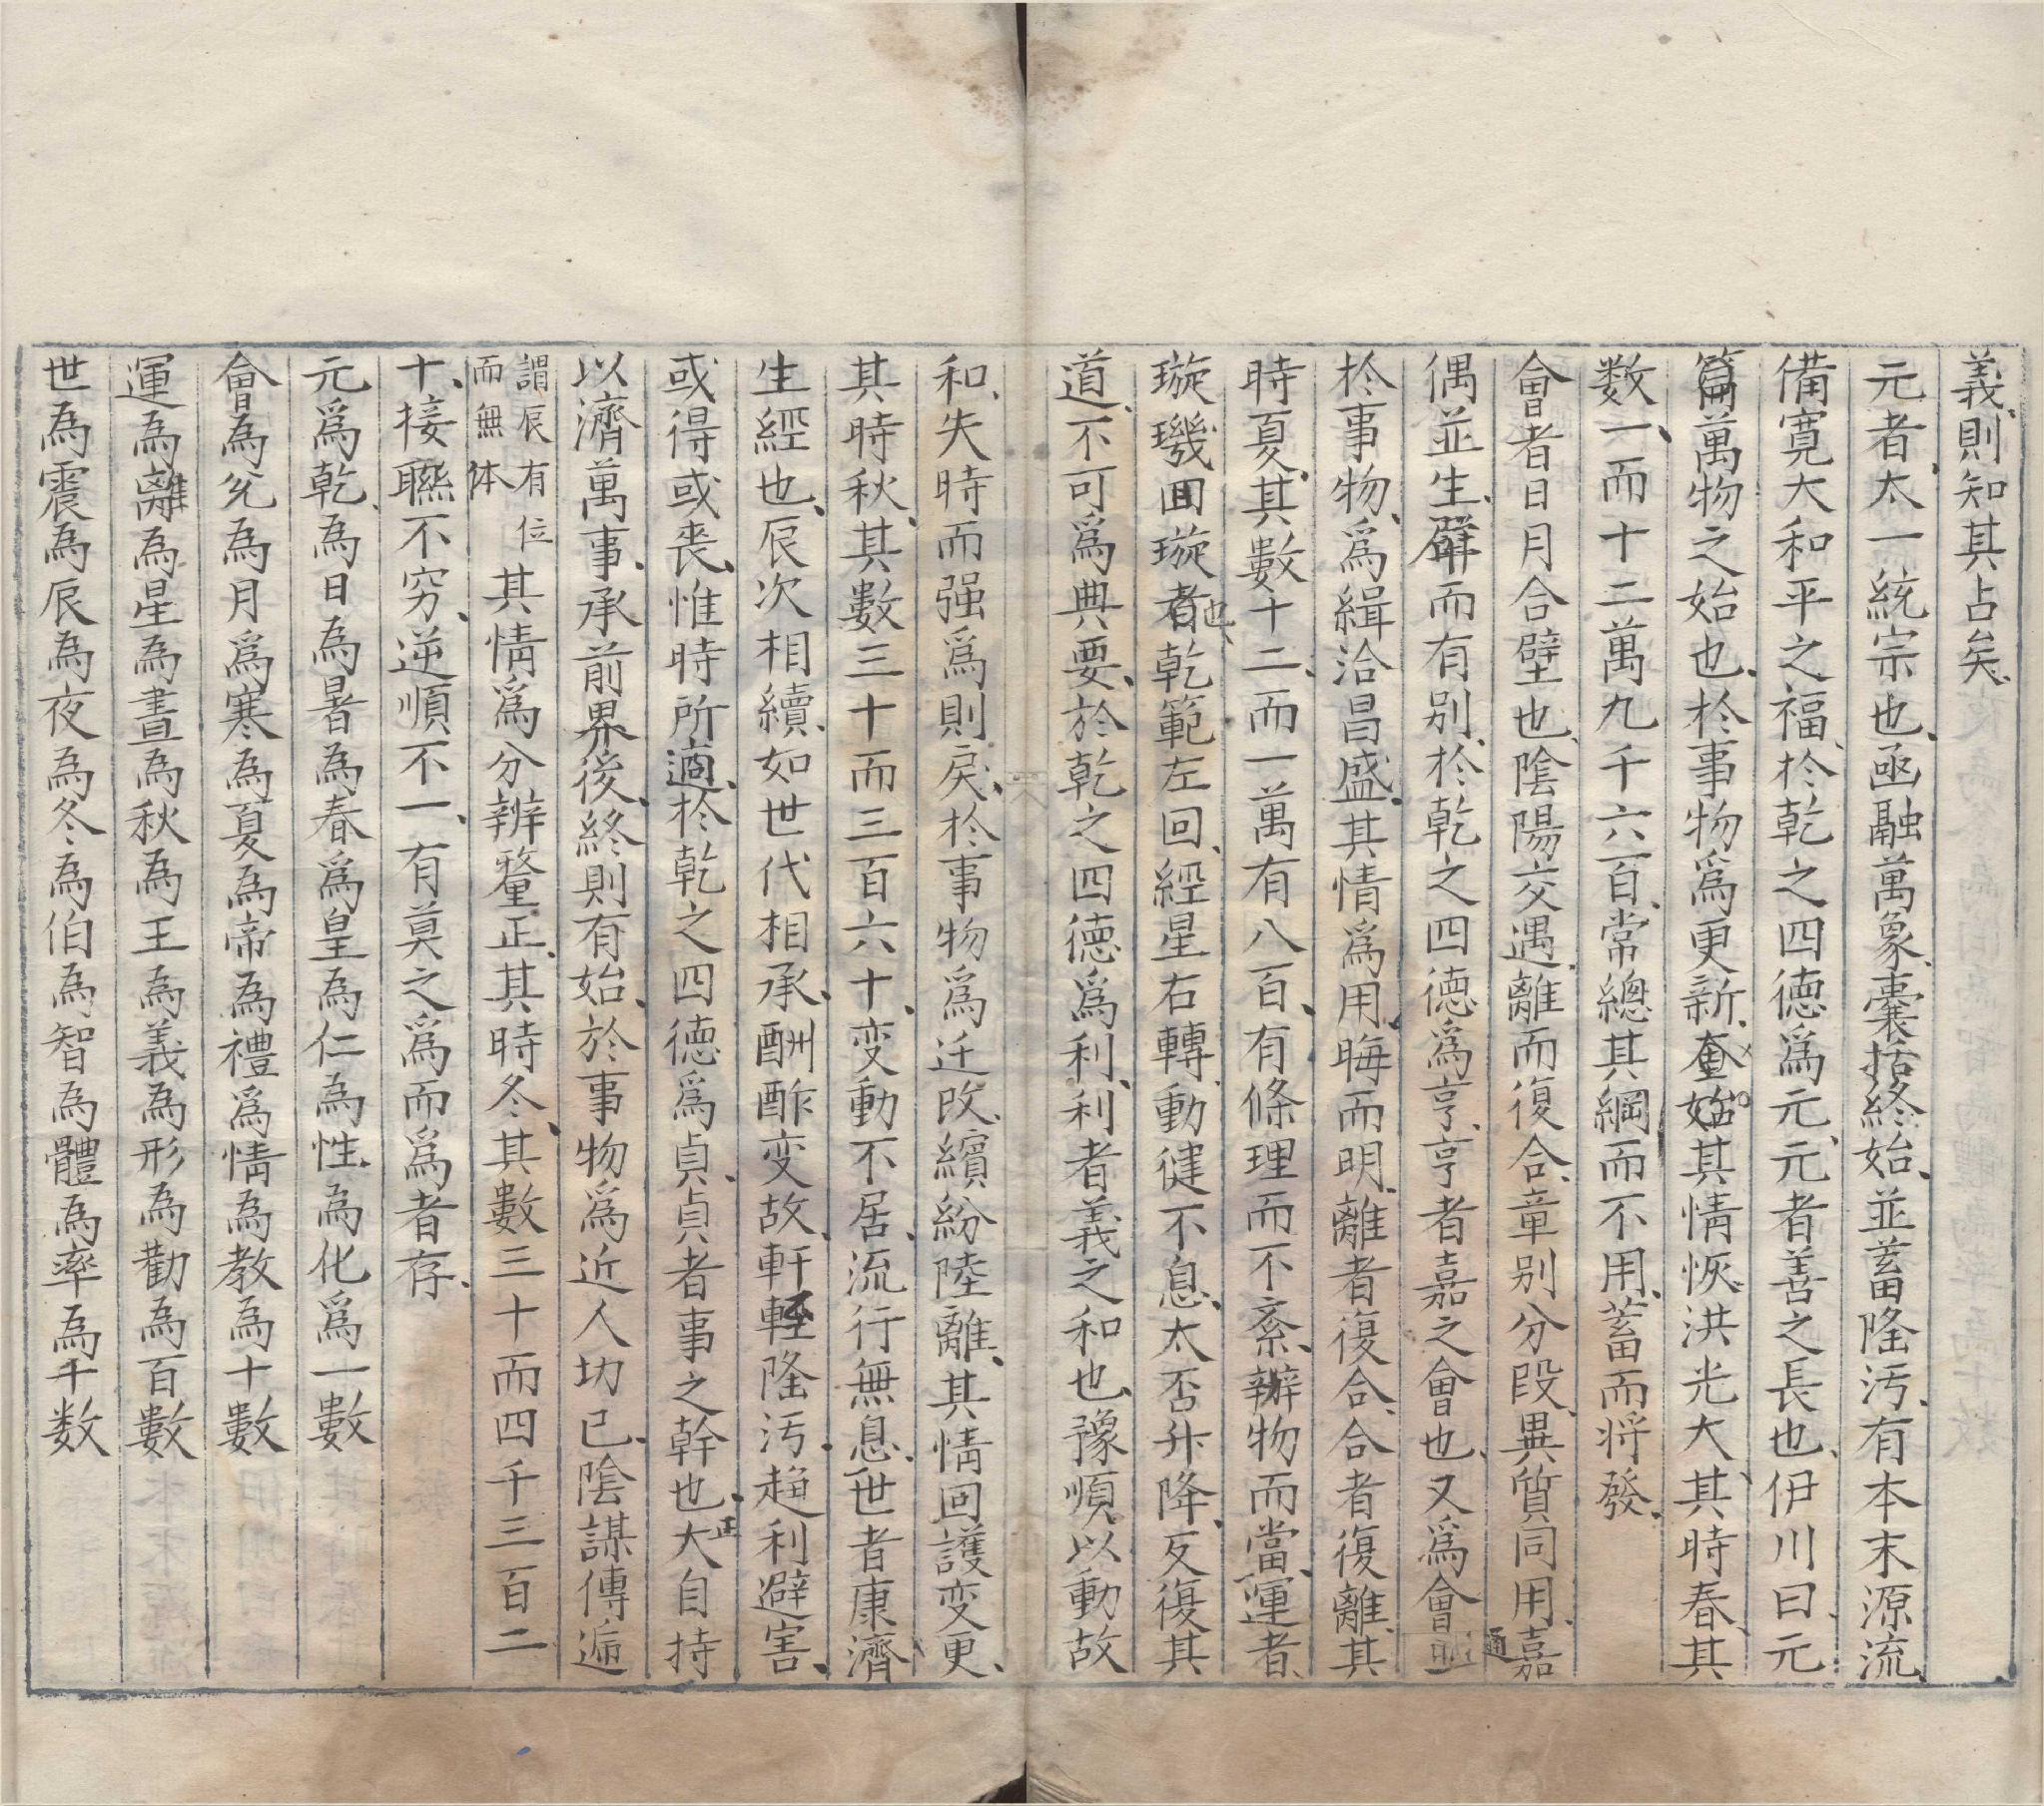 義則知其占矣
元者太一統宗也函融萬象囊括終始並蓄隆污有本末源流
備寛大和平之福於乾之四徳爲元元者善之長也伊川曰元
萬物之始也於事物爲更新始其情恢洪光大其時春其
数一而十二萬九千六百常總其綱而不用蓄而将發
會者日月合壁也陰陽交遇離而復合章別分段異質同用嘉
偶並生而有别於乾之四徳爲亨亨者嘉之會也又爲會通
於事物爲緝洽昌盛其情爲用晦而明離者復合合者復離其
時夏其數十二而一萬有八百有條理而不紊辦物而當運者
璇璣囬璇者也乾範左回經星右轉動健不息太否升降反復其
道不可爲典要於乾之四徳爲利利者義之和也豫順以動故
和失時而强爲則戾於事物爲迁改繽紛陸離其情回護变更
其時秋其數三十而三百六十变動不居流行無息世者康濟
生經也辰次相續如世代相承酬酢变故軒輊隆污趋利避害
或得或喪惟時所適於乾之四徳爲貞貞者事之幹也正大自持
以濟萬事承前界後終則有始於事物爲近人切已陰謀傳遍
謂辰有位
而無体
其情爲分辨釐正其時冬其數三十而四千三百二
十接聮不穷逆順不一有莫之爲而爲者存
元爲乾為日為暑為春爲皇為仁為性為化爲一數
會為兊為月爲寒為夏為帝為禮爲情為教為十數
運為離為星為晝為秋為王為義為形為勸為百數
世為震為辰為夜為冬為伯為智為體為率為千数